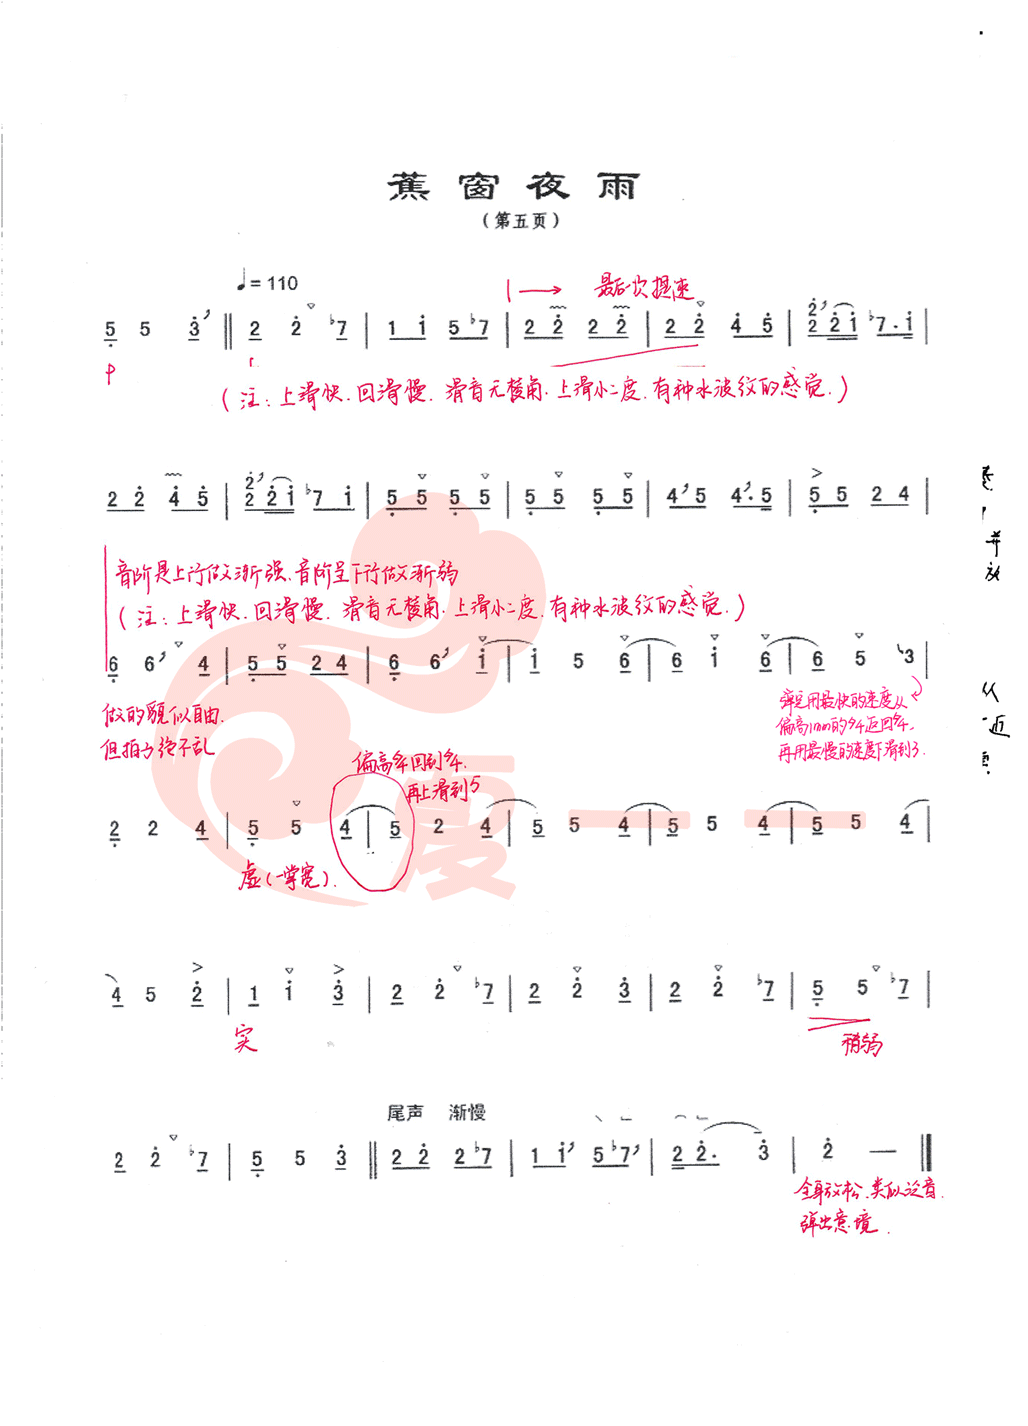 蕉窗夜雨
（第五页）
♩= 110
最后一次提速
5 5 3 ‖ 2 2 ♭7 | 1 1 5 ♭7 | 2 2 2 2 | 2 2 4 5 | 2 2 2 1 ♭7. 1 |
（注：上滑快.回滑慢.滑音无棱角.上滑小二度.有种水波纹的感觉.）
2 2 4 5 | 2 2 2 1 ♭7 1 | 5 5 5 5 | 5 5 5 5 | 4 5 4. 5 | 5 5 2 4 |
音阶是上行做渐强、音阶呈下行做渐弱
（注：上滑快.回滑慢.滑音无棱角.上滑小二度.有种水波纹的感觉.）
6 6 4 | 5 5 2 4 | 6 6 1 | 1 5 6 | 6 1 6 | 6 5 3 |
做的貌似自由.
但拍子绝不乱
弹完用最快的速度从
偏高1mm的#4返回#4.
再用最慢的速度下滑到3.
偏高#4回到#4.
再上滑到5
2 2 4 | 5 5 4 | 5 2 4 | 5 5 4 | 5 5 4 | 5 5 4 |
虚(一掌宽).
夏一一
4 5 2 | 1 1 3 | 2 2 ♭7 | 2 2 3 | 2 2 ♭7 | 5 5 ♭7 |
实
稍弱
尾声 渐慢
2 2 ♭7 | 5 5 3 ‖ 2 2 2 ♭7 | 1 1 5 ♭7 | 2 2. 3 | 2 — ‖
全身放松.类似泛音.
弹出意境.
并
从
近